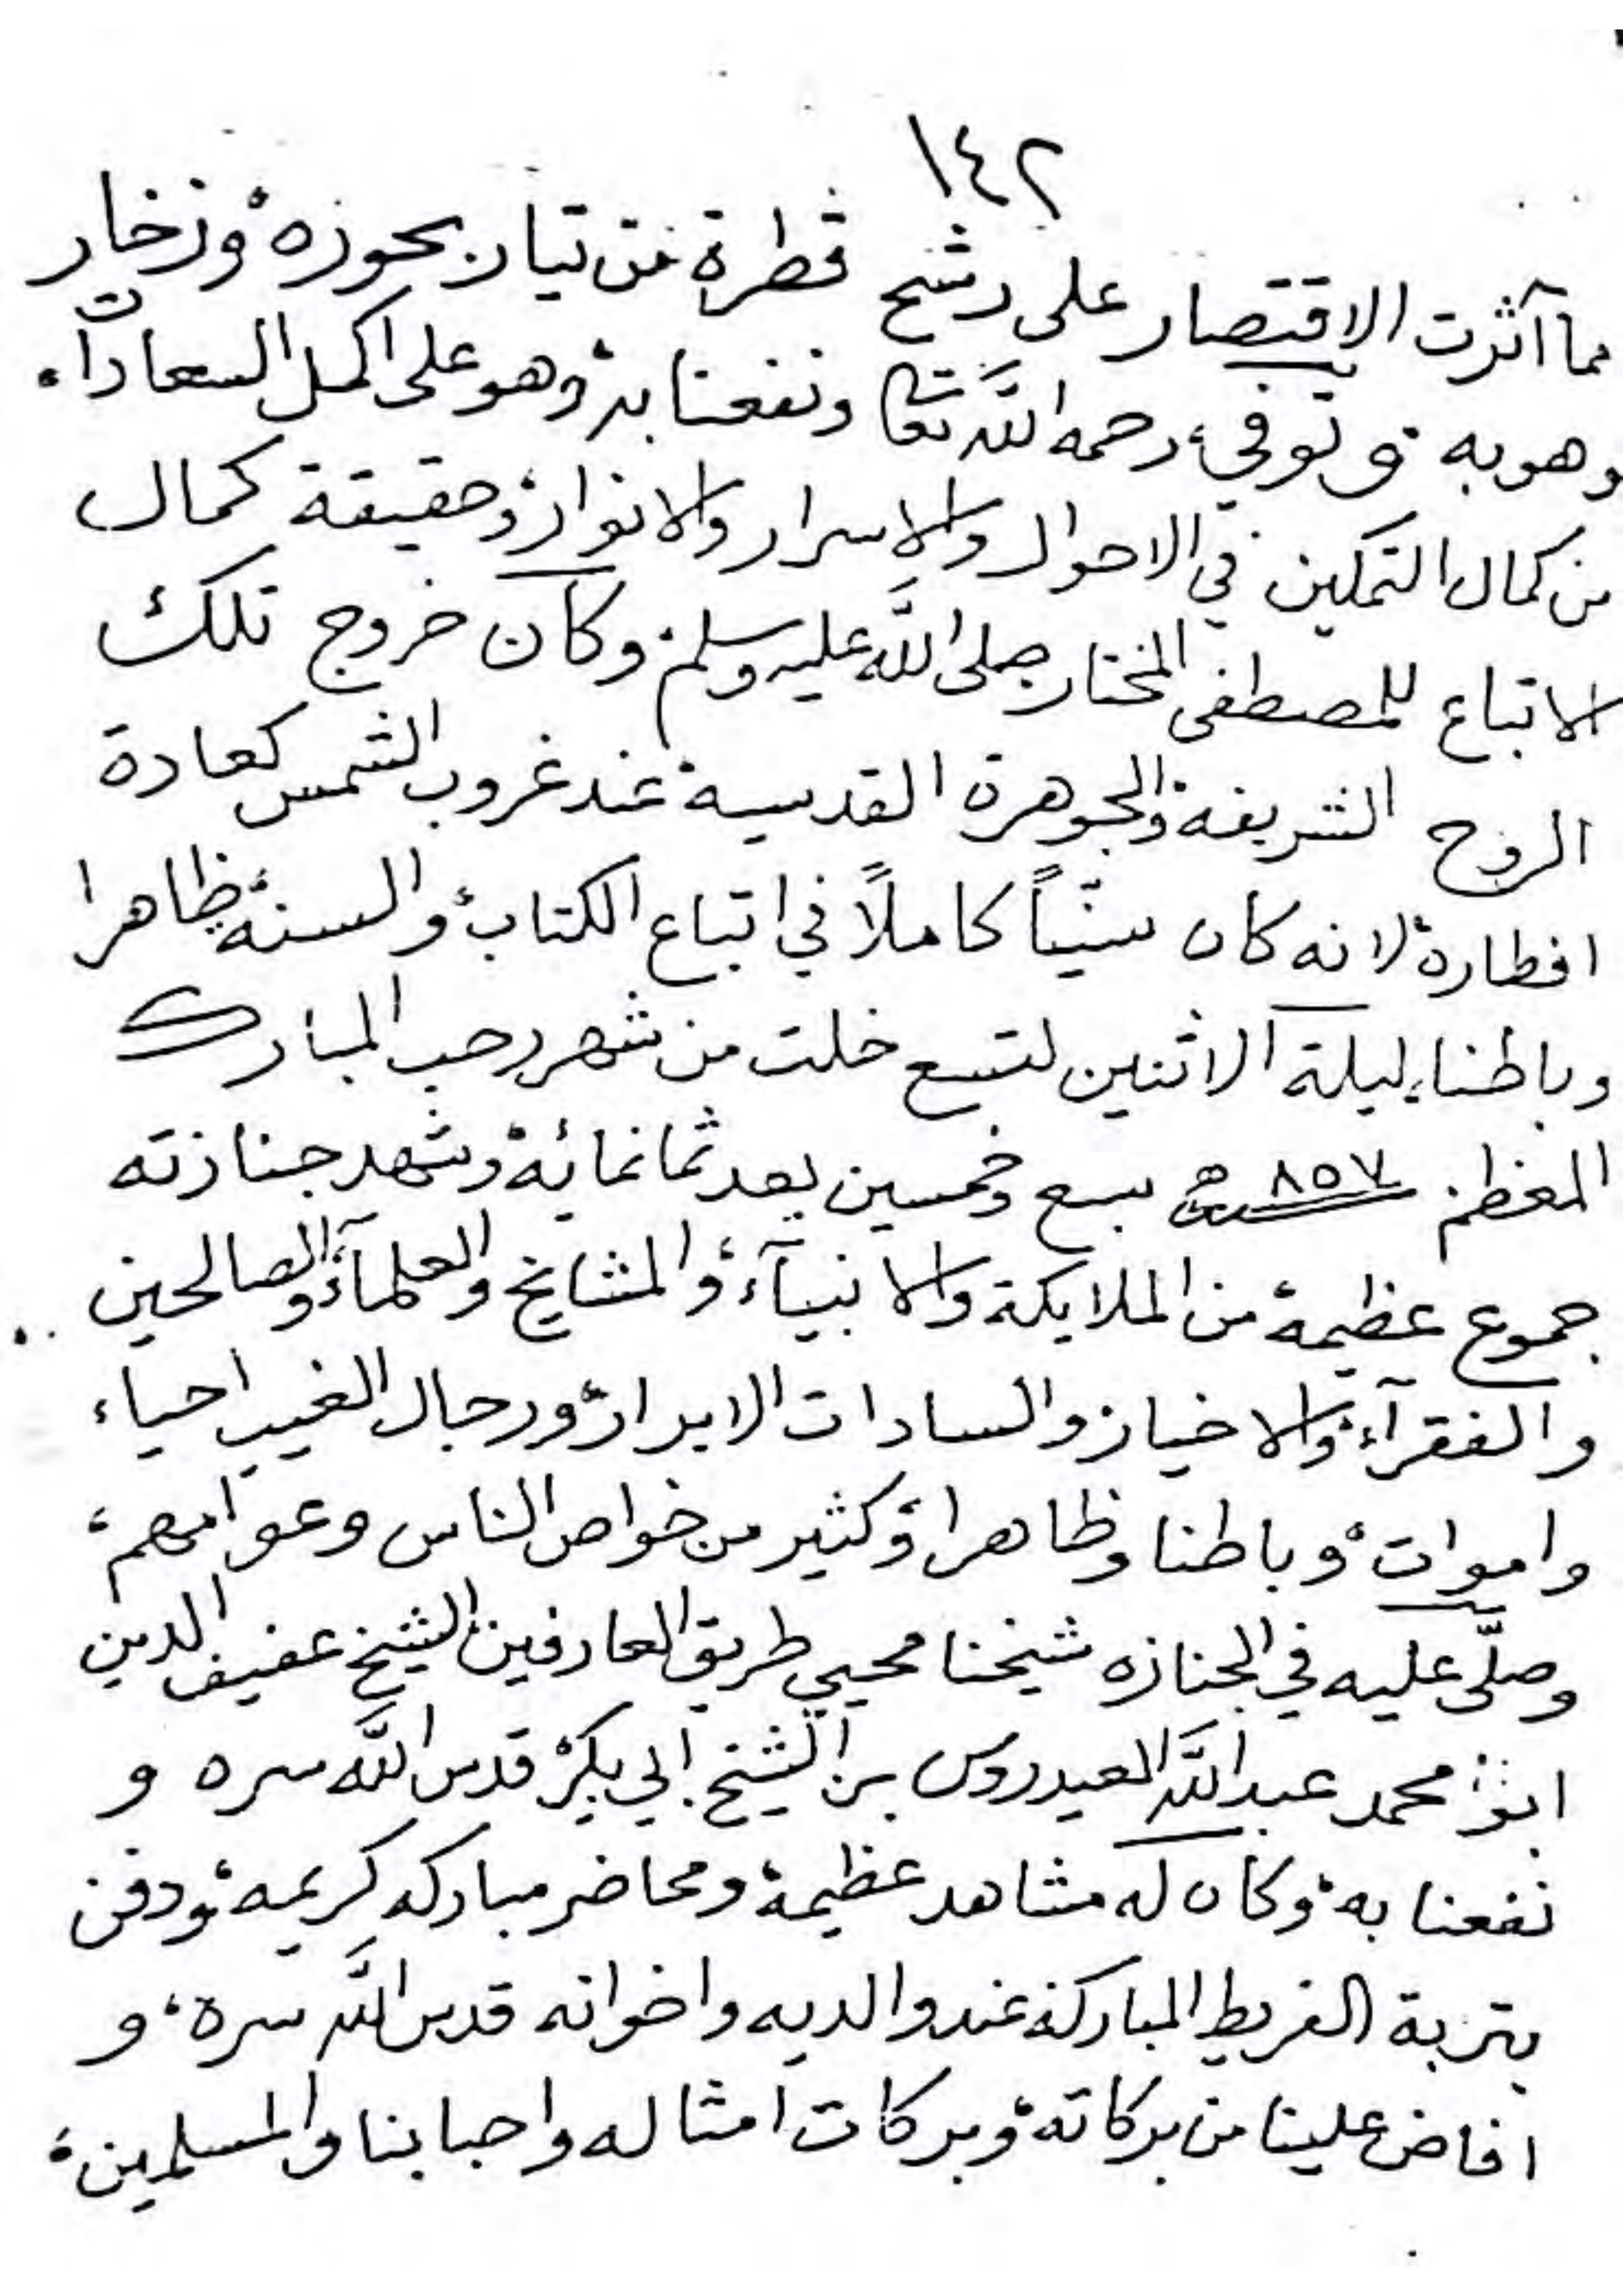 ١٤٢
مما آثرت الاقتصار على رشح قطرة من تيار بحوره، وزخار
وهوبه، وتوفي، رحمه الله تعا ونفعنا به، وهو على اكمل السعادات،
من كمال التمكين في الاحوال والاسرار والانوار، وحقيقة كمال
الاتباع للمصطفى المختار صلى الله عليه وسلم، وكان خروج تلك
الروح الشريفة، والجوهرة القدسية، عند غروب الشمس كعادة
افطاره، لانه كان سنيّاً كاملاً في اتباع الكتاب، والسنة، ظاهرا
وباطنا، ليلة الاثنين لتسع خلت من شهر رجب المبارك
المعظم. سنة ٨٥٧ سبع وخمسين بعد ثمانمائة، وشهد جنازته
جموع عظيمة، من الملايكة والانبيآء، والمشايخ والعلمآء، والصالحين
والفقرآء، والاخيار والسادات الابرار، ورجال الغيب احياء
واموات، وباطنا وظاهرا، وكثير من خواص الناس وعوامهم،
وصلّى عليه في الجنازه شيخنا محيي طريق العارفين، الشيخ عفيف الدين
ابو، محمد عبد الله العيدروس بن الشيخ ابي بكر، قدس الله سره و
نفعنا به، وكان له مشاهد عظيمة، ومحاضر مباركه كريمه، ودفن
بتربة الفريط المباركة، عند والديه واخوانه قدس الله سره، و
افاض علينا من بركاته، وبركات امثاله واحبابنا والمسلمين،